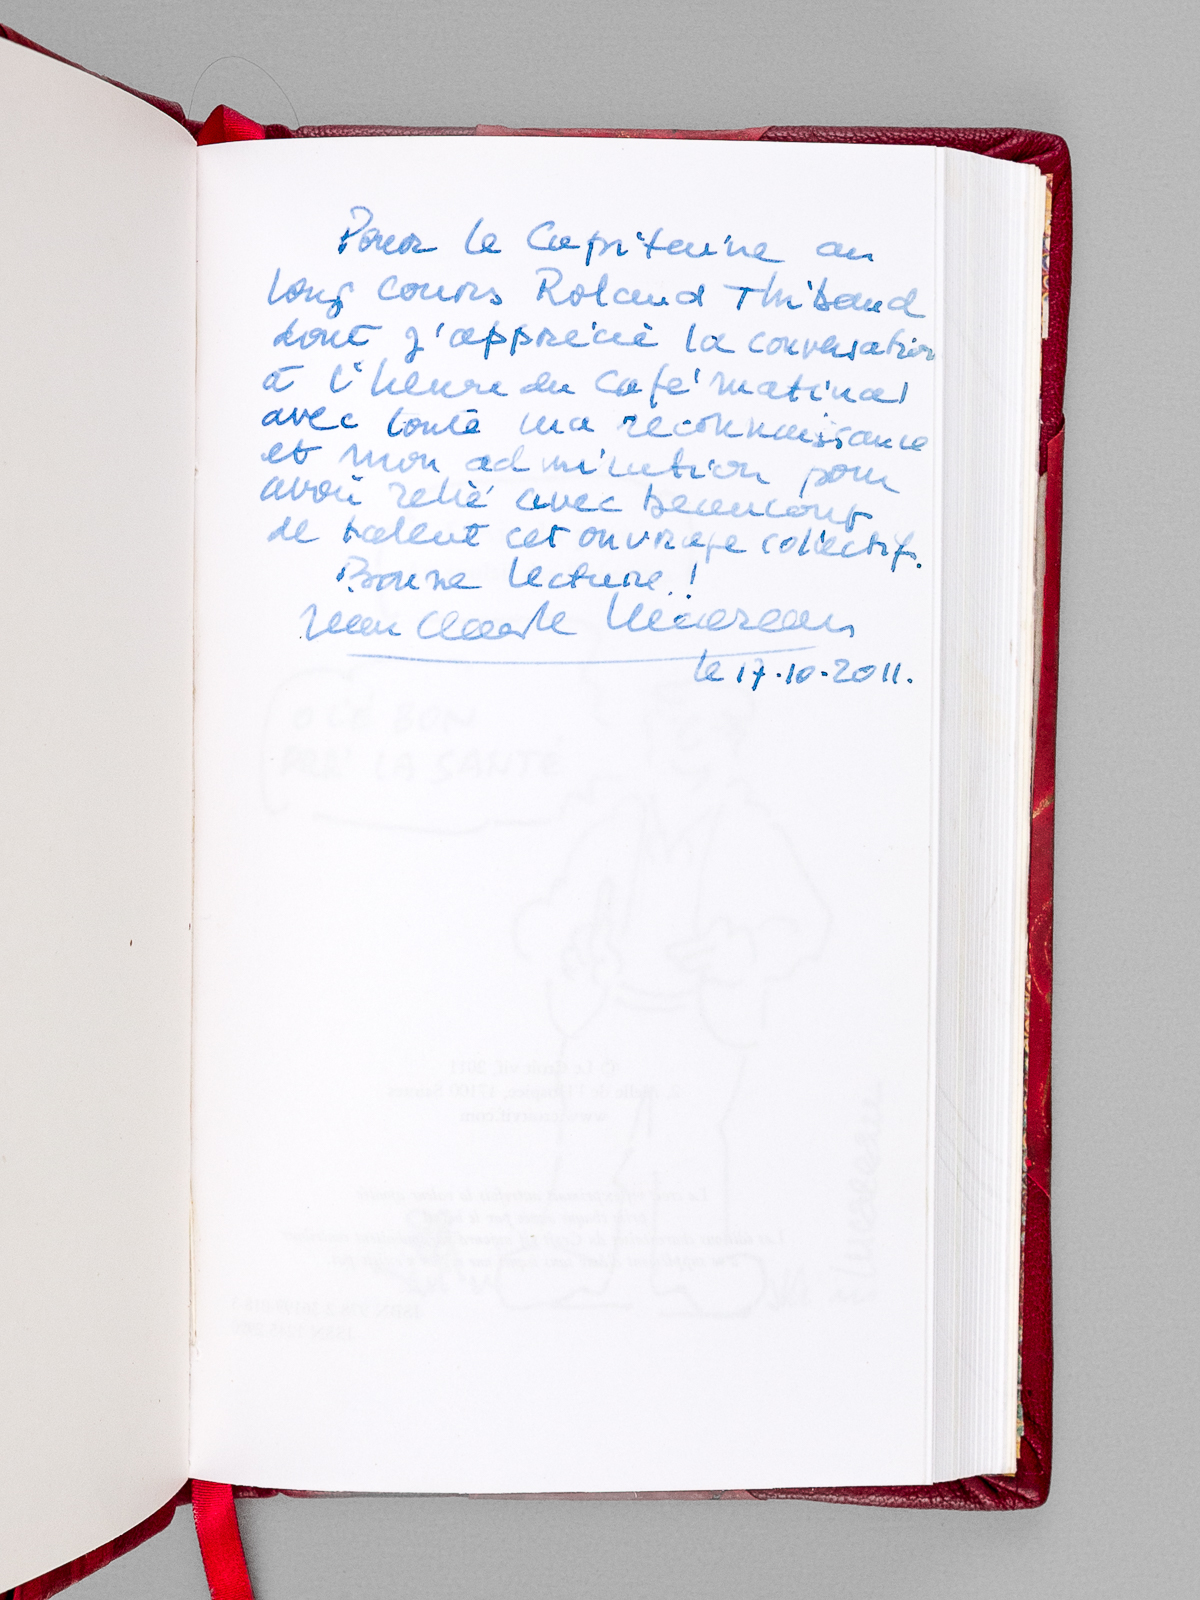 Pour le Capitaine au
long cours Roland Thibaud
dont j'apprécie la conversation
à l'heure du café matinal
avec toute ma reconnaissance
et mon admiration pour
avoir relié avec beaucoup
de talent cet ouvrage collectif.
Bonne lecture !
Jean Claude Lucazeau
le 17.10.2011.